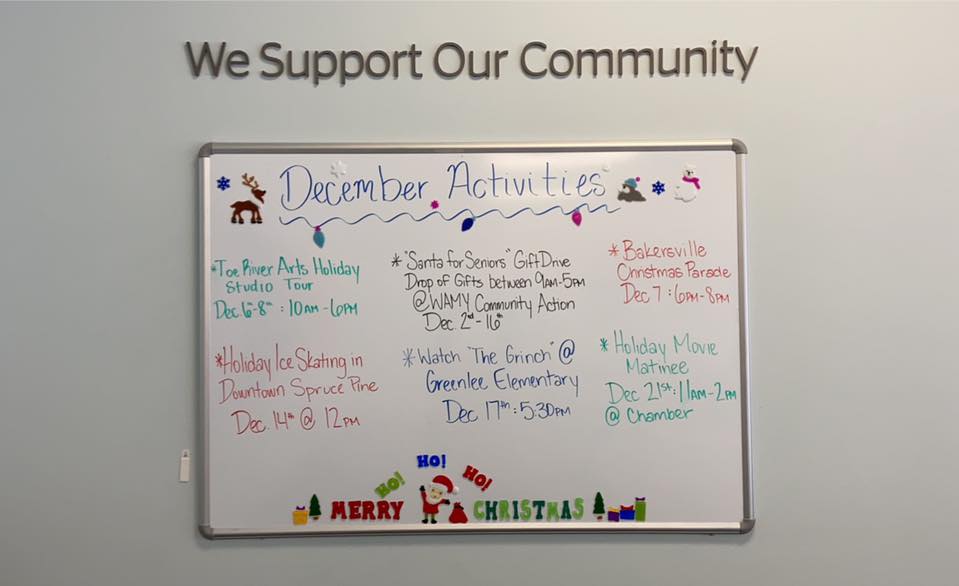 We Support Our Community
December Activities
*Toe River Arts Holiday
Studio Tour
Dec. 6th-8th : 10AM-6PM
* "Santa for Seniors" Gift Drive
Drop of Gifts between 9AM-5PM
@WAMY Community Action
Dec. 2nd-16th
*Bakersville
Christmas Parade
Dec 7 : 6PM-8PM
*Holiday Ice Skating in
Downtown Spruce Pine
Dec. 14th @ 12PM
*Watch "The Grinch" @
Greenlee Elementary
Dec 17th : 5:30PM
* Holiday Movie
Matinee
Dec 21st : 11AM-2PM
@ Chamber
HO! HO! HO!
MERRY CHRISTMAS